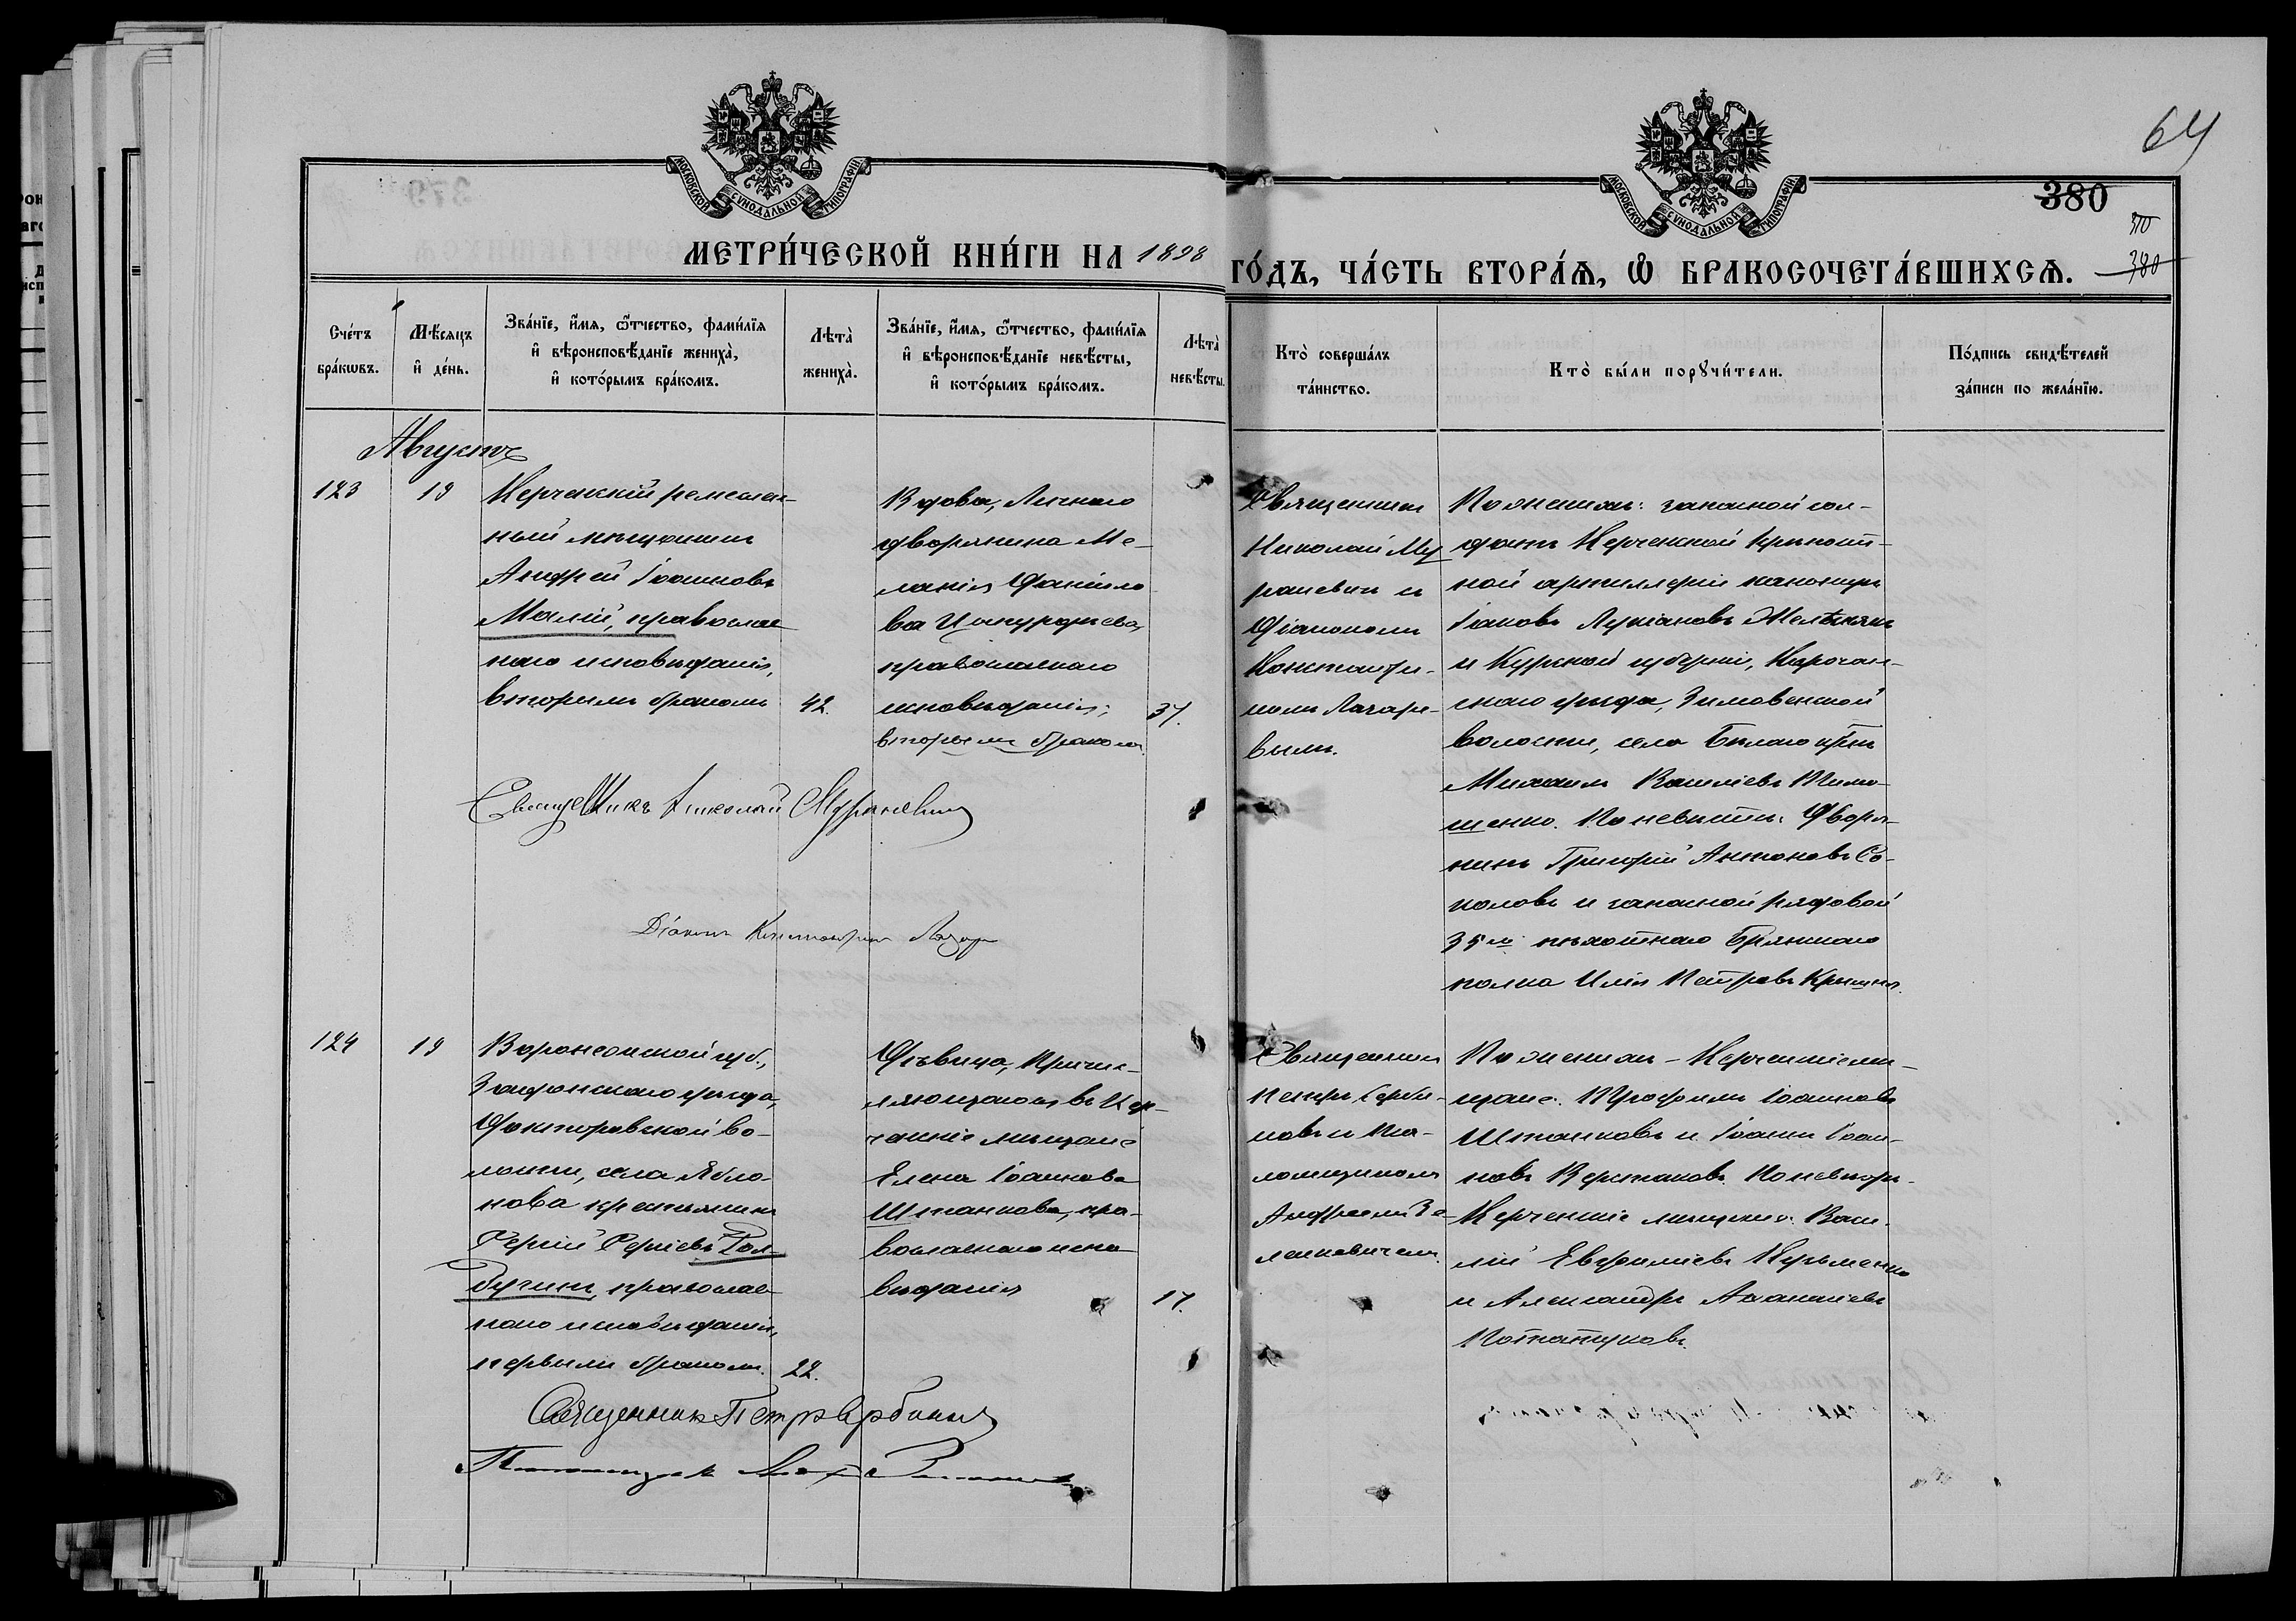 64
380
370
380
МОСКОВСКОЙ СѴНОДАЛЬНОЙ ТИПОГРАФІИ
МОСКОВСКОЙ СѴНОДАЛЬНОЙ ТИПОГРАФІИ
МЕТРИ́ЧЕСКОЙ КНИ́ГИ НА 1898
ГО́ДЪ, ЧА́СТЬ ВТОРА́Ѧ, Ѽ БРАКОСОЧЕТА́ВШИХСѦ.
Сче́тъ
бра́кѡвъ.
Мѣ́сяцъ
и҆ де́нь.
Зва́нїе, и҆́мя, ѻ҆́тчество, фами́лїя
и҆ вѣроисповѣ́данїе жениха̀,
и҆ кото́рымъ бра́комъ.
Лѣта̀
жениха̀.
Зва́нїе, и҆́мя, ѻ҆́тчество, фами́лїя
и҆ вѣроисповѣ́данїе невѣ́сты,
и҆ кото́рымъ бра́комъ.
Лѣта̀
невѣ́сты.
Кто̀ соверша́лъ
та́инство.
Кто̀ бы́ли порꙋчи́тели.
По́дпись свидѣ́телей
за́писи по жела́нїю.
Августъ
123
19
Керченскій ремеслен-
ный мѣщанинъ
Андрей Іоанновъ
Малій, православ
наго исповѣданія,
вторымъ бракомъ
42.
Вдова, Личнаго
дворянина Ме-
ланія Даніило
ва
православнаго
исповѣданія;
вторымъ бракомъ
37.
Священникъ
Николай Му
раневич и
Діакономъ
Константи-
номъ Лазаре-
вымъ.
По женихѣ: запасной сол-
датъ Керченской крѣпост-
ной артиллеріи канониръ
Іаковъ Лукіановъ Желѣзнякъ
и Курской губерніи, Корочан-
скаго уѣзда, Зимовенской
волости, села Бѣлаго кр-нъ
Михаилъ Василіевъ Тимо-
шенко. По невѣстѣ: Дворя-
нинъ Григорій Антоновъ Со-
коловъ и запасной рядовой
35го пѣхотнаго Брянскаго
полка Илія Петровъ
Священникъ Николай Мураневич
Діаконъ Константинъ Лазаре
124
19
Воронежской губ.,
Задонскаго уѣзда,
волости, села Ябло
нова крестьянинъ
Сергій Сергіевъ Дол-
бучинъ, православ
наго исповѣданія,
первымъ бракомъ.
22.
Дѣвица, причис-
ляющаяся въ Кер-
ченскіе мѣщане
Елена Іоаннова
Штанкова, пра-
вославнаго испо
вѣданія
17.
Священникъ
Петръ Серби-
новъ и Пса-
ломщикомъ
Андреемъ Зе-
ленкевичемъ.
По женихѣ - Керченскіе мѣ-
щане: Трофимъ Іоанновъ
Штанковъ и Іоаннъ Іоан-
новъ Верстаковъ. По невѣстѣ-
Керченскіе мѣщане: Васи-
лій Евфиміевъ
и Александръ Аѳанасіевъ
Священник Петръ Сербиновъ